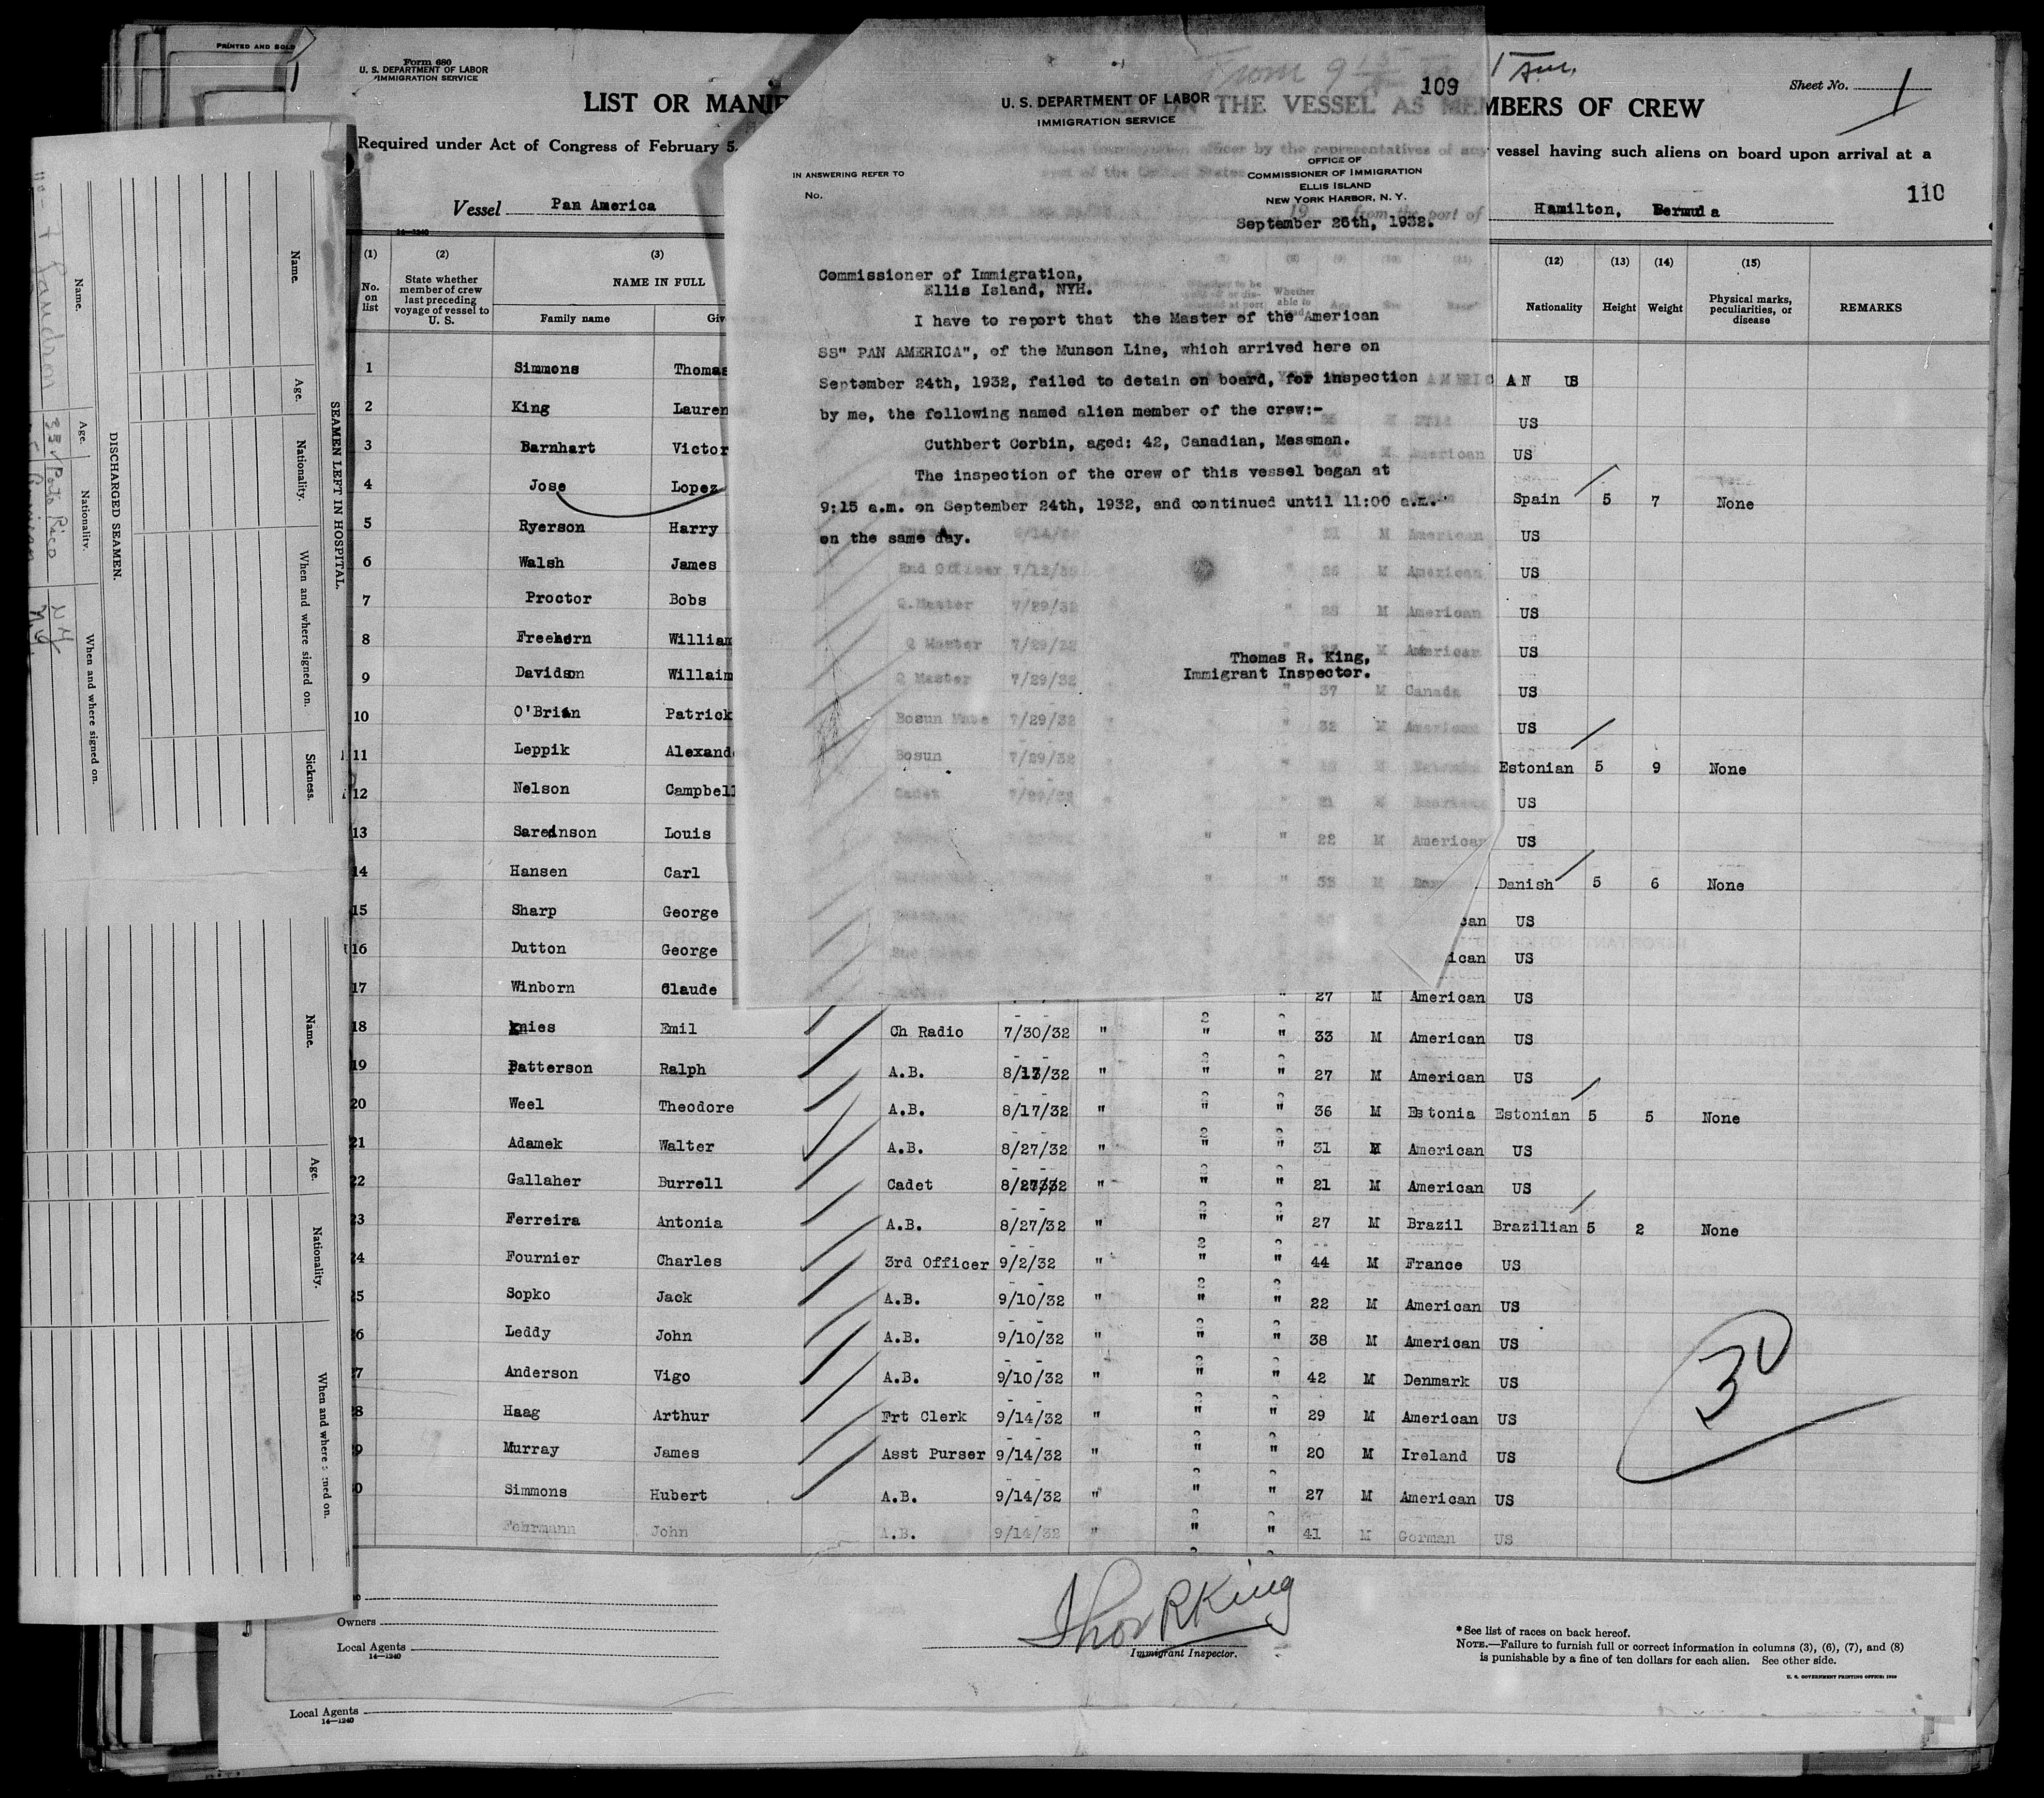 PRINTED AND SOLD
Form 680
U. S. DEPARTMENT OF LABOR
IMMIGRATION SERVICE
LIST OR MANIF
THE VESSEL AS MEMBERS OF CREW
Sheet No. 1
Required under Act of Congress of February 5,
vessel having such aliens on board upon arrival at a
Vessel Pan America
from the port of Hamilton, Bermuda
110
From 9 15
109
U. S. DEPARTMENT OF LABOR
IMMIGRATION SERVICE
IN ANSWERING REFER TO
No.
OFFICE OF
COMMISSIONER OF IMMIGRATION
ELLIS ISLAND
NEW YORK HARBOR, N. Y.
September 26th, 1932.
Commissioner of Immigration,
Ellis Island, NYH.
I have to report that the Master of the American
SS" PAN AMERICA", of the Munson Line, which arrived here on
September 24th, 1932, failed to detain on board, for inspection
by me, the following named alien member of the crew:-
Cuthbert Corbin, aged: 42, Canadian, Messman.
The inspection of the crew of this vessel began at
9:15 a.m. on September 24th, 1932, and continued until 11:00 a.m.
on the same day.
Thomas R. King,
Immigrant Inspector.
(1) (2) (3) (12) (13) (14) (15)
No. on list
State whether member of crew last preceding voyage of vessel to U. S.
NAME IN FULL
Family name
Giv
Nationality Height Weight
Physical marks, peculiarities, or disease
REMARKS
1 Simmons Thomas US
2 King Lauren US
3 Barnhart Victor American US
4 Jose Lopez Spain 5 7 None
5 Ryerson Harry 21 M American US
6 Walsh James 2nd Officer 7/12/32 " 26 M American US
7 Proctor Bobs Q.Master 7/29/32 " 28 M American US
8 Freeborn William Q Master 7/29/32 M American US
9 Davidson Willaim Q Master 7/29/32 " 37 M Canada US
10 O'Brian Patrick Bosun Mate 7/29/32 " 32 M American US
11 Leppik Alexand Bosun 7/29/32 Estonian 5 9 None
12 Nelson Campbell Cadet 7/29/32 21 M US
13 Sareinson Louis " " 22 M American US
14 Hansen Carl " " 33 M Danish 5 6 None
15 Sharp George can US
16 Dutton George ican US
17 Winborn Claude " 27 M American US
18 Knies Emil Ch Radio 7/30/32 " " " 33 M American US
19 Patterson Ralph A.B. 8/13/32 " " " 27 M American US
20 Weel Theodore A.B. 8/17/32 " " " 36 M Estonia Estonian 5 5 None
21 Adamek Walter A.B. 8/27/32 " " " 31 M American US
22 Gallaher Burrell Cadet 8/27/32 " " " 21 M American US
23 Ferreira Antonia A.B. 8/27/32 " " " 27 M Brazil Brazilian 5 2 None
24 Fournier Charles 3rd Officer 9/2/32 " " " 44 M France US
25 Sopko Jack A.B. 9/10/32 " " " 22 M American US
26 Leddy John A.B. 9/10/32 " " " 38 M American US
27 Anderson Vigo A.B. 9/10/32 " " " 42 M Denmark US
28 Haag Arthur Frt Clerk 9/14/32 " " " 29 M American US
29 Murray James Asst Purser 9/14/32 " " " 20 M Ireland US
30 Simmons Hubert A.B. 9/14/32 " " " 27 M American US
Fehrmann John A.B. 9/14/32 " " " 41 M German US
30
Thos R King
Immigrant Inspector.
Owners
Local Agents
14—1240
* See list of races on back hereof.
NOTE.—Failure to furnish full or correct information in columns (3), (6), (7), and (8)
is punishable by a fine of ten dollars for each alien. See other side.
U. S. GOVERNMENT PRINTING OFFICE: 1929
Local Agents
14—1240
SEAMEN LEFT IN HOSPITAL.
Name. Age. Nationality. When and where signed on. Sickness.
DISCHARGED SEAMEN.
Name. Age. Nationality. When and where signed on.
33 Porto Rico NY
Name. Age. Nationality. When and where signed on.